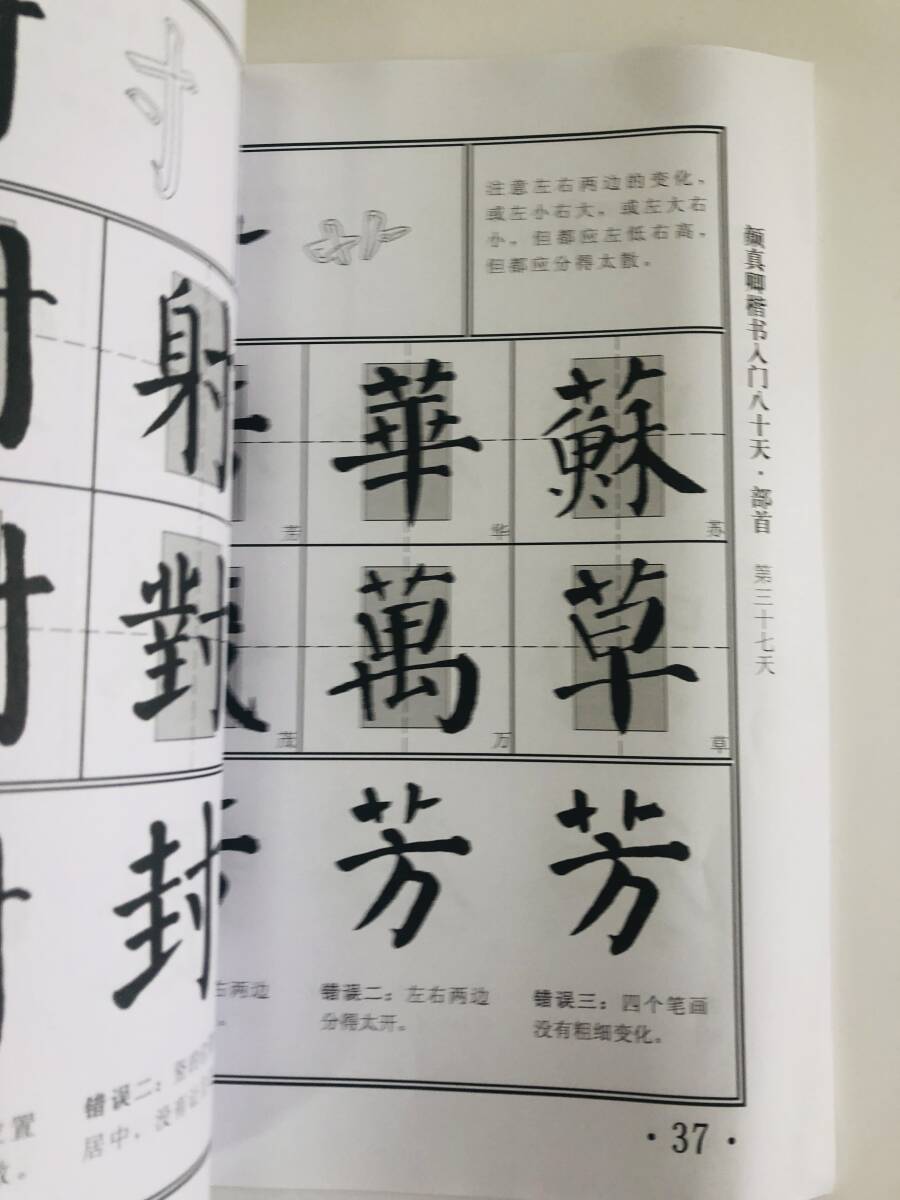 寸
射
對
封
错误二：
居中，没有
置
散。
注意左右两边的变化，
或左小右大，或左大右
小，但都应左低右高，
但都应分得太散。
華
华
蘇
苏
萬
万
草
草
茂
芳
芳
右两边
错误二：左右两边
分得太开。
错误三：四个笔画
没有粗细变化。
颜真卿楷书入门八十天·部首 第三十七天
·37·